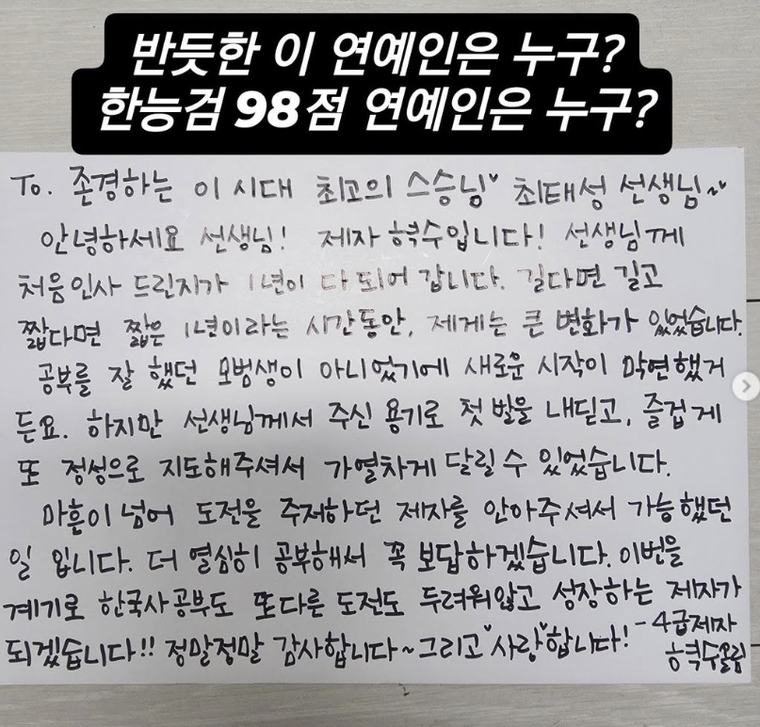 반듯한 이 연예인은 누구?
한능검 98점 연예인은 누구?
To. 존경하는 이 시대 최고의 스승님♥ 최태성 선생님~♥
안녕하세요 선생님! 제자 혁수입니다! 선생님께
처음인사 드린지가 1년이 다 되어 갑니다. 길다면 길고
짧다면 짧은 1년이라는 시간동안, 제게는 큰 변화가 있었습니다.
공부를 잘 했던 모범생이 아니었기에 새로운 시작이 막연했거
든요. 하지만 선생님께서 주신 용기로 첫 발을 내딛고, 즐겁게
또 정성으로 지도해주셔서 가열차게 달릴 수 있었습니다.
마흔이 넘어 도전을 주저하던 제자를 안아주셔서 가능했던
일 입니다. 더 열심히 공부해서 꼭 보답하겠습니다. 이번을
계기로 한국사공부도 또다른 도전도 두려워않고 성장하는 제자가
되겠습니다!! 정말정말 감사합니다~그리고♥사랑♥합니다! - 4급제자
혁수올림